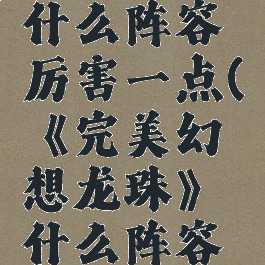 什么阵容
厉害一点(
《完美幻
想龙珠》
什么阵容